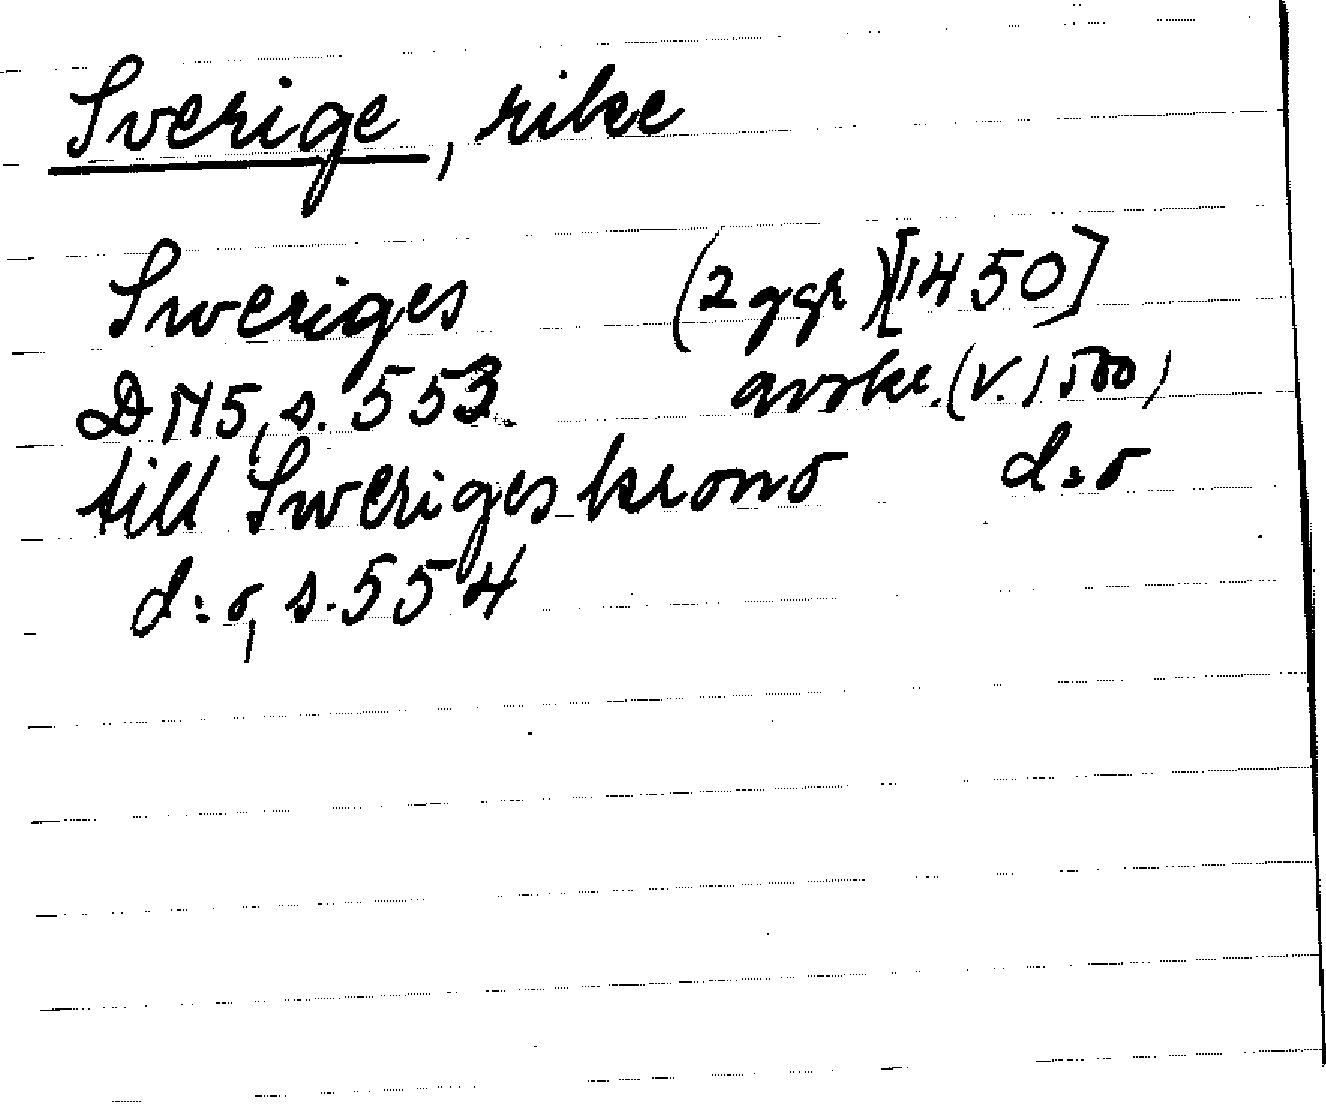 Sverige, rike
Sweriges (2 ggr) [1450]
DN5, s. 553 avskr. (v. 1500)
till Sweriges krono d:o
d:o, s. 554